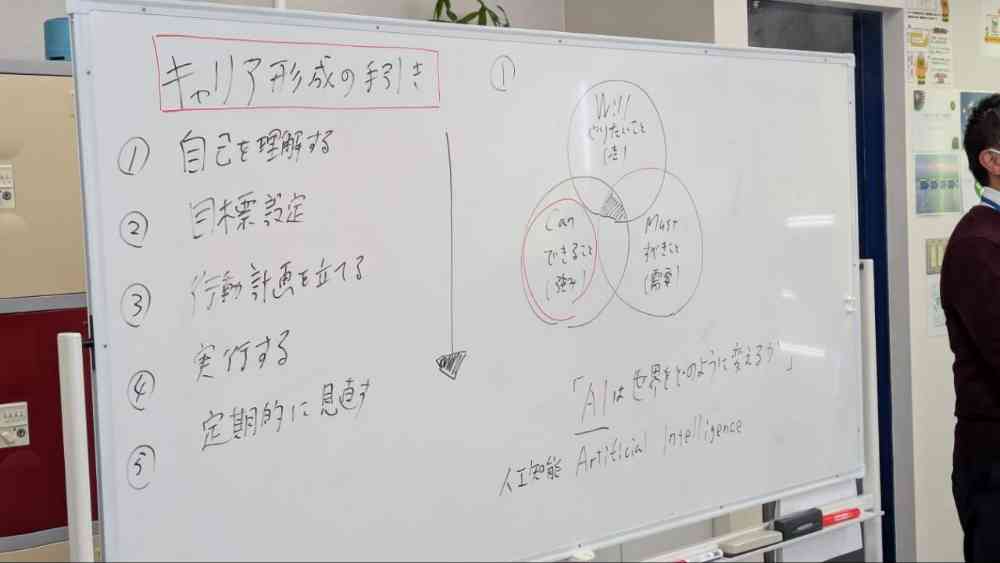 キャリア形成の手引き
① 自己を理解する
② 目標設定
③ 行動計画を立てる
④ 実行する
⑤ 定期的に見直す
①
Will
やりたいこと
Can
できること
(強み)
Must
すべきこと
(需要)
「AIは世界をどのように変えるか」
人工知能 Artificial Intelligence